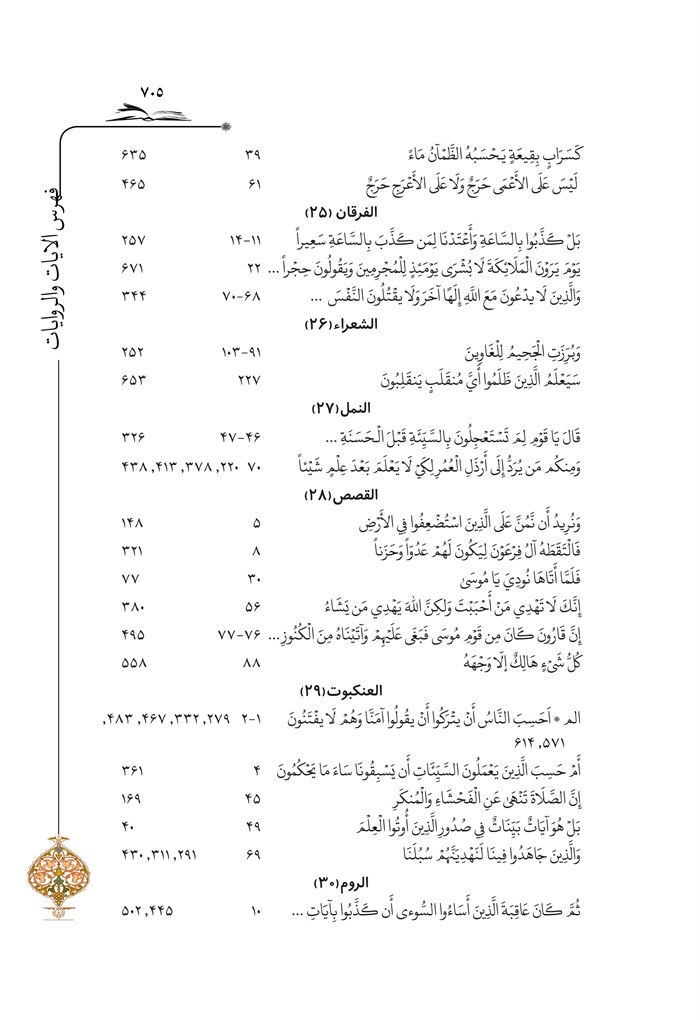 ۷۰۵
فهرس الآيات والروايات
كَسَرَابٍ بِقِيعَةٍ يَحْسَبُهُ الظَّمْآنُ مَاءً ۳۹ ۶۳۵
لَيْسَ عَلَى الأَعْمَى حَرَجٌ وَلَا عَلَى الأَعْرَجِ حَرَجٌ ۶۱ ۴۶۵
الفرقان (۲۵)
بَلْ كَذَّبُوا بِالسَّاعَةِ وَأَعْتَدْنَا لِمَن كَذَّبَ بِالسَّاعَةِ سَعِيراً ۱۱-۱۴ ۲۵۷
يَوْمَ يَرَوْنَ الْمَلَائِكَةَ لَا بُشْرَى يَوْمَئِذٍ لِلْمُجْرِمِينَ وَيَقُولُونَ حِجْراً ... ۲۲ ۶۷۱
وَالَّذِينَ لَا يَدْعُونَ مَعَ اللَّهِ إِلَهًا آخَرَ وَلَا يَقْتُلُونَ النَّفْسَ ... ۶۸-۷۰ ۳۴۴
الشعراء (۲۶)
وَبُرِّزَتِ الْجَحِيمُ لِلْغَاوِينَ ۹۱-۱۰۳ ۲۵۲
سَيَعْلَمُ الَّذِينَ ظَلَمُوا أَيَّ مُنقَلَبٍ يَنقَلِبُونَ ۲۲۷ ۶۵۳
النمل (۲۷)
قَالَ يَا قَوْمِ لِمَ تَسْتَعْجِلُونَ بِالسَّيِّئَةِ قَبْلَ الْحَسَنَةِ ... ۴۶-۴۷ ۳۲۶
وَمِنكُم مَن يُرَدُّ إِلَى أَرْذَلِ الْعُمُرِ لِكَيْ لَا يَعْلَمَ بَعْدَ عِلْمٍ شَيْئاً ۷۰ ۲۲۰, ۳۷۸, ۴۱۳, ۴۳۸
القصص (۲۸)
وَنُرِيدُ أَن نَّمُنَّ عَلَى الَّذِينَ اسْتُضْعِفُوا فِي الأَرْضِ ۵ ۱۴۸
فَالْتَقَطَهُ آلُ فِرْعَوْنَ لِيَكُونَ لَهُمْ عَدُوّاً وَحَزَناً ۸ ۳۲۱
فَلَمَّا أَتَاهَا نُودِيَ يَا مُوسَىٰ ۳۰ ۷۷
إِنَّكَ لَا تَهْدِي مَنْ أَحْبَبْتَ وَلَكِنَّ اللهَ يَهْدِي مَن يَشَاءُ ۵۶ ۳۸۰
إِنَّ قَارُونَ كَانَ مِن قَوْمِ مُوسَى فَبَغَى عَلَيْهِمْ وَآتَيْنَاهُ مِنَ الْكُنُوزِ... ۷۶-۷۷ ۴۹۵
كُلُّ شَيْءٍ هَالِكٌ إِلَّا وَجْهَهُ ۸۸ ۵۵۸
العنكبوت (۲۹)
الم * اَحَسِبَ النَّاسُ أَنْ يتْرَكُوا أَنْ يقُولُوا آمَنَّا وَهُمْ لَا يفْتَنُونَ ۱-۲ ۲۷۹, ۳۳۲, ۴۶۷, ۴۸۳,
۵۷۱, ۶۱۴
أَمْ حَسِبَ الَّذِينَ يَعْمَلُونَ السَّيِّئَاتِ أَن يَسْبِقُونَا سَاءَ مَا يَحْكُمُونَ ۴ ۳۶۱
إِنَّ الصَّلَاةَ تَنْهَىٰ عَنِ الْفَحْشَاءِ وَالْمُنكَرِ ۴۵ ۱۶۹
بَلْ هُوَ آيَاتٌ بَيِّنَاتٌ فِي صُدُورِ الَّذِينَ أُوتُوا الْعِلْمَ ۴۹ ۴۰
وَالَّذِينَ جَاهَدُوا فِينَا لَنَهْدِيَنَّهُمْ سُبُلَنَا ۶۹ ۲۹۱, ۳۱۱, ۴۳۰
الروم (۳۰)
ثُمَّ كَانَ عَاقِبَةَ الَّذِينَ أَسَاءُوا السُّوءى أَن كَذَّبُوا بِآيَاتِ ... ۱۰ ۴۴۵, ۵۰۲